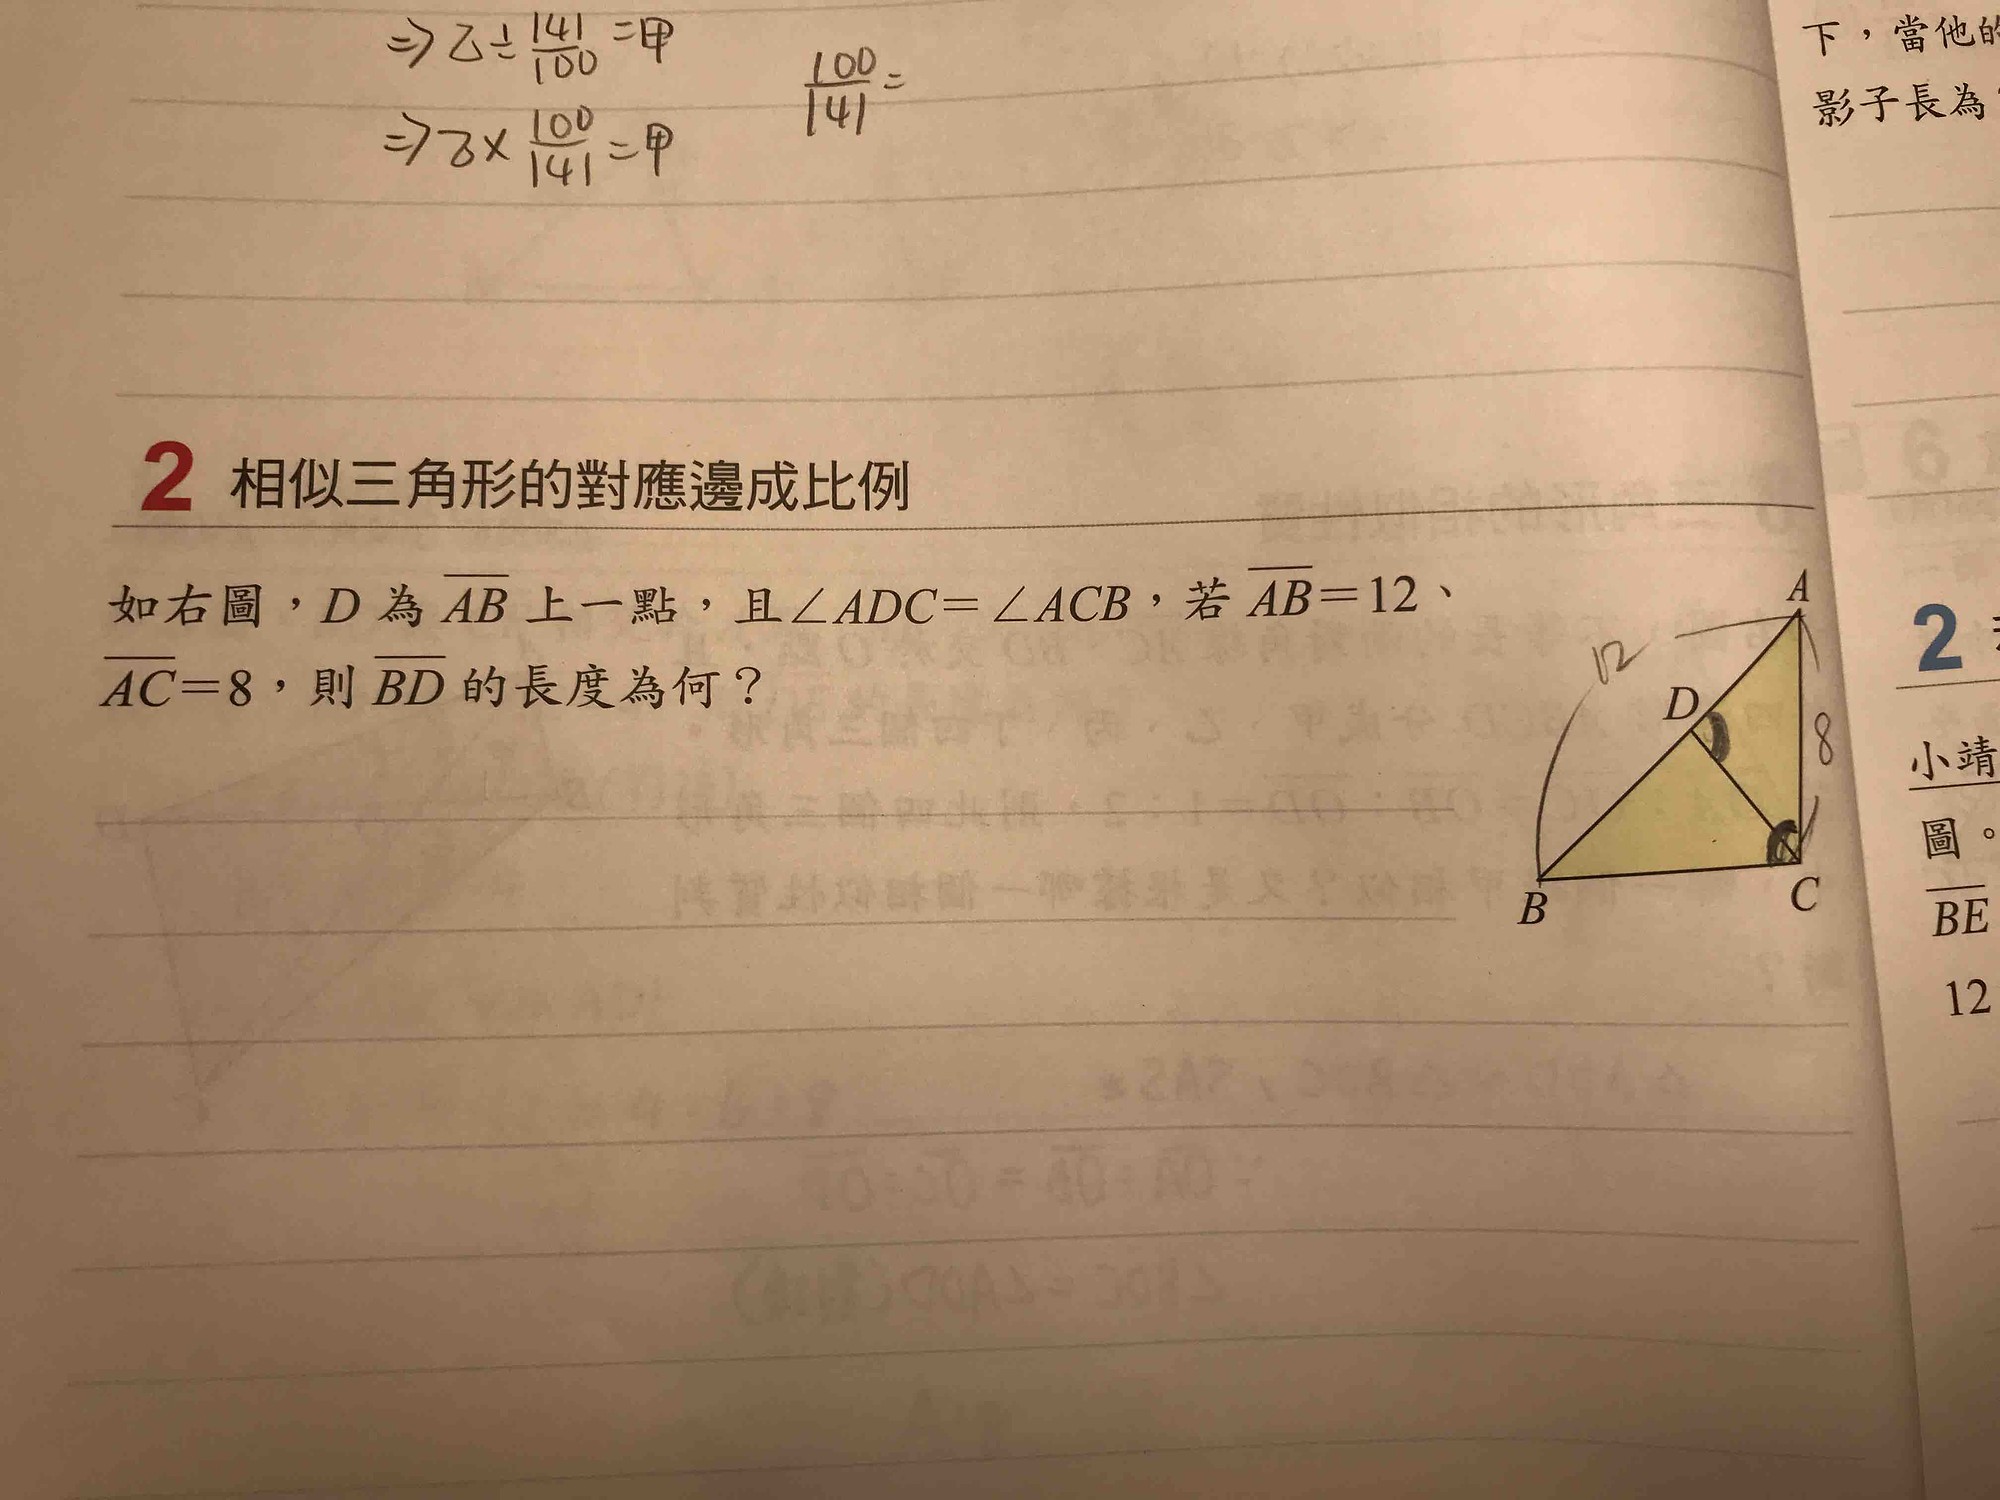 ⇒ 乙÷141/100=甲
100/141=
⇒ 乙×100/141=甲
2 相似三角形的對應邊成比例
如右圖,D 為 AB 上一點,且∠ADC=∠ACB,若 AB=12、
AC=8,則 BD 的長度為何?
A
12
D
8
B
C
下,當他的
影子長為
2
小靖
圖。
BE
12